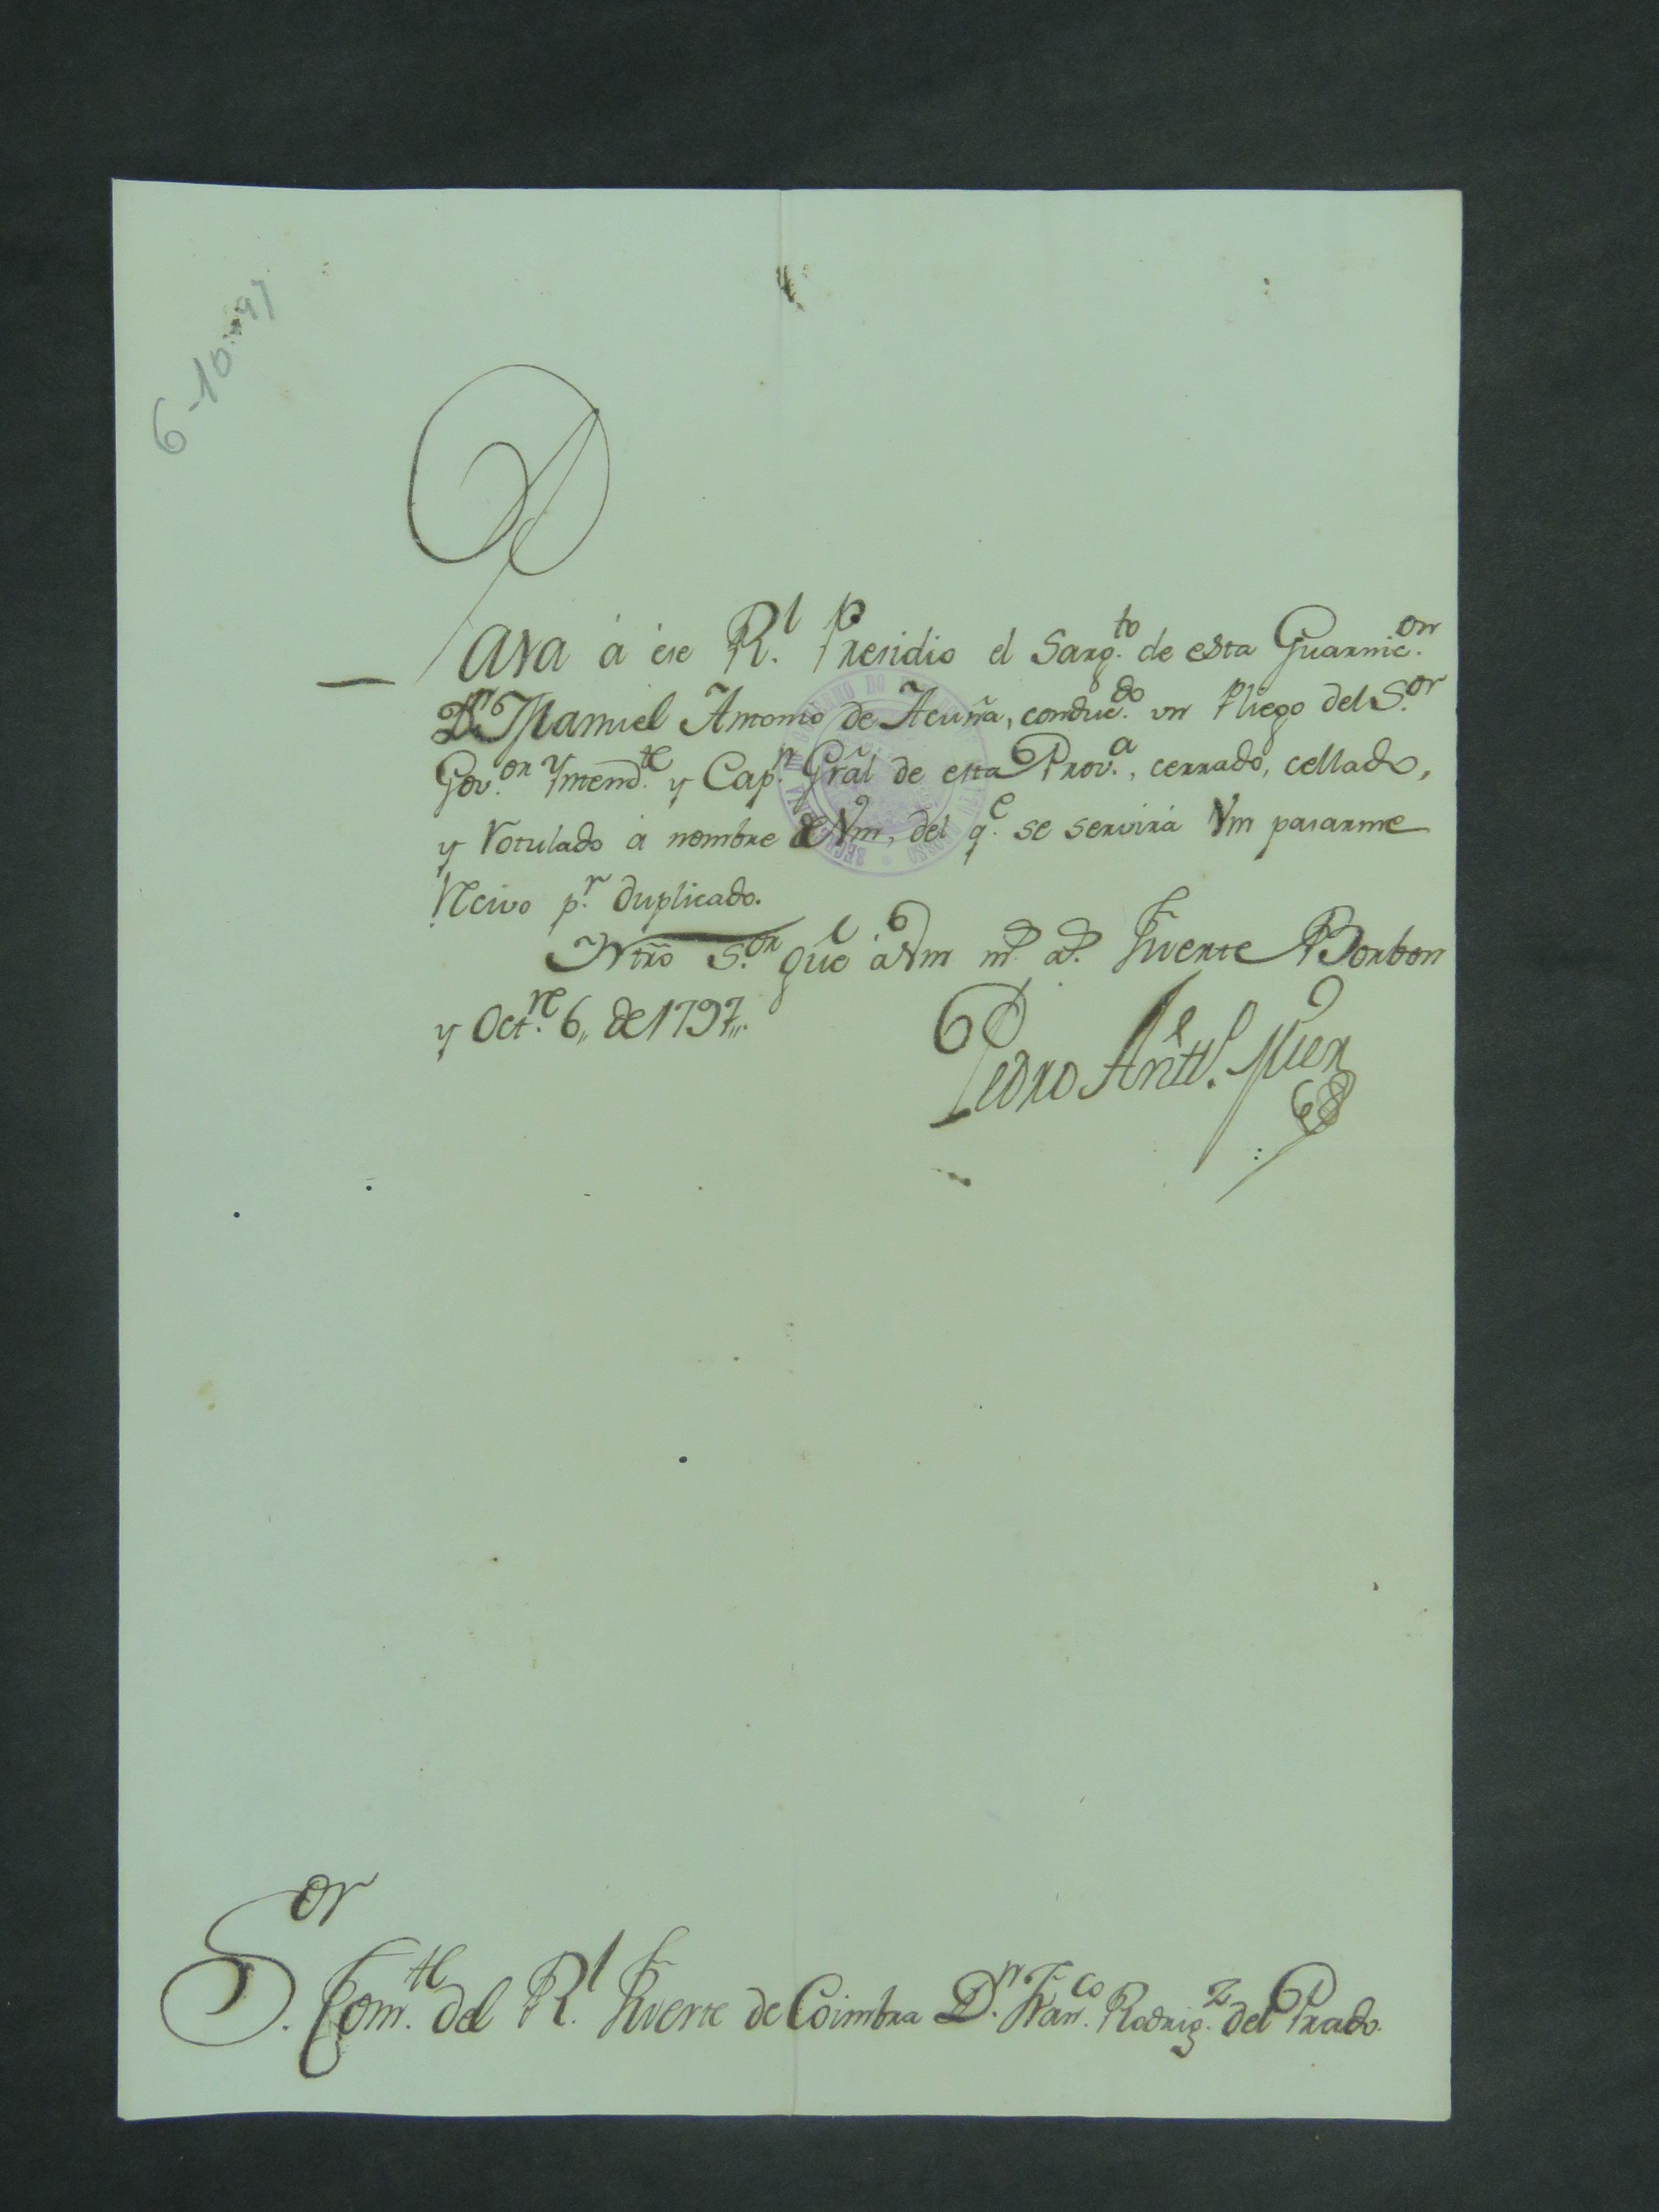 6-10-97
Pasa á ese R.l Presidio el Sarg.to de esta Guarnic.on
Dn Manuel Antonio de Acuña, conduc.do un Pliego del S.or
Gov.or Yntend.te y Cap.n Gral de esta Prov.a, cerrado, cellado,
y Rotulado á nombre de Vm, del q.e se servirá Vm pasarme
Recivo p.r duplicado.
Ntrõ S.or gūe á Vm m.s a.s Fuerte Borbon
y Oct.re 6,, de 1797,,.
Pedro Antt.o Mier
S.or Com.te del R.l Fuerte de Coimbra D.n Fran.co Rodrig.z del Prado.